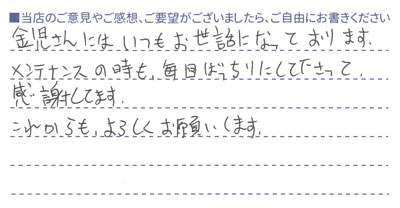 ■当店のご意見やご感想、ご要望がございましたら、ご自由にお書きください
金児さんにはいつもお世話になっております。
メンテナンスの時も、毎回ばっちりにして下さって、
感謝してます。
これからも、よろしくお願いします。